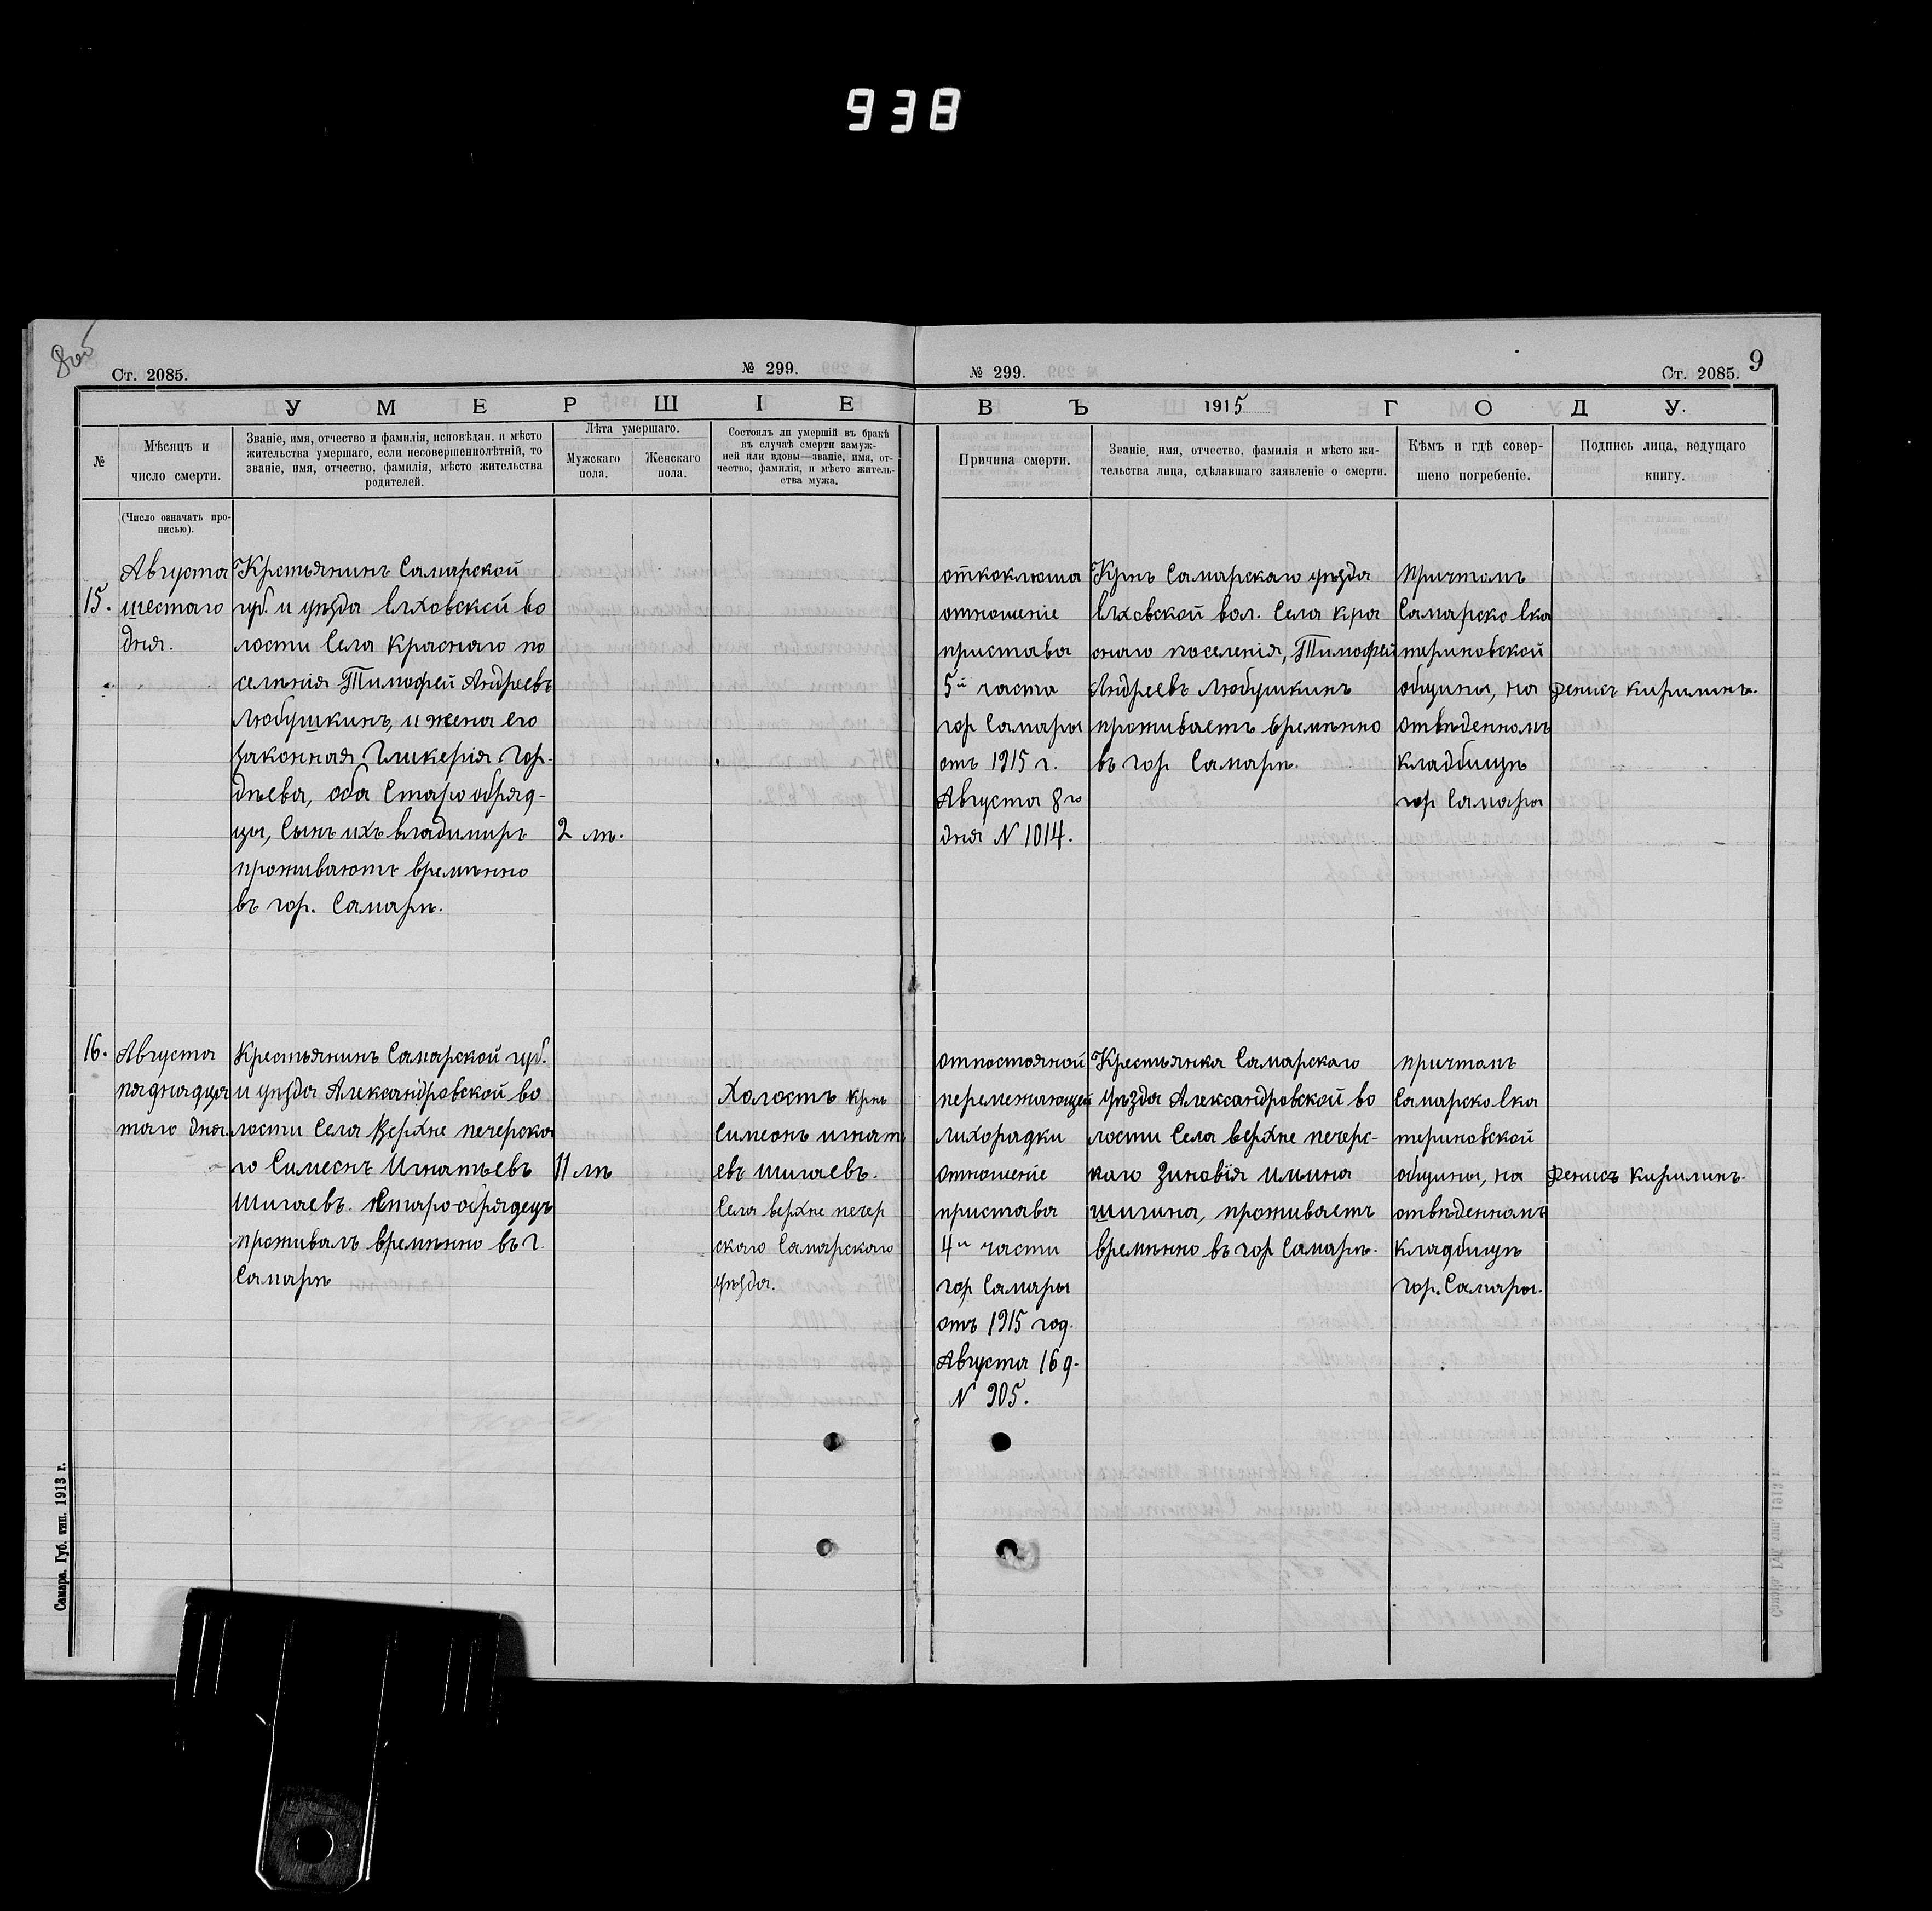 938
8об
Ст. 2085.
№ 299.
№ 299.
Ст. 2085.
9
УМЕРШІЕ
ВЪ 1915 ГОДУ.
№
Мѣсяцъ и
число смерти.
Званіе, имя, отчество и фамилія, исповѣдан. и мѣсто
жительства умершаго, если несовершеннолѣтній, то
званіе, имя, отчество, фамилія, мѣсто жительства
родителей.
Лѣта умершаго.
Мужскаго
пола.
Женскаго
пола.
Состоялъ ли умершій въ бракѣ
въ случаѣ смерти замуж-
ней или вдовы—званіе, имя, от-
чество, фамилія, и мѣсто житель-
ства мужа.
Причина смерти.
Званіе, имя, отчество, фамилія и мѣсто жи-
тельства лица, сдѣлавшаго заявленіе о смерти.
Кѣмъ и гдѣ совер-
шено погребеніе.
Подпись лица, ведущаго
книгу.
(Число означать про-
писью).
15.
Августа
шестаго
дня.
Крстьянинъ Самарской
губ. и уѣзда Елховской во
лости Села Краснаго по
селѣнія Тимофей Андреевъ
Любушкинъ, и жена его
законная Гликерія Гор-
дѣева, оба Старообряд-
цы, Сынъ ихъ Владимиръ
проживаютъ времѣнно
въ гор. Самарѣ.
2 лѣ.
откоклюша
отношеніе
пристава
5й части
гор Самары
отъ 1915 г.
Августа 8го
дня N 1014.
Крнъ Самарскаго уѣзда
Елховской вол. Села Кра
снаго поселенія, Тимофей
Андреевъ Любушкинъ
проживаетъ времѣнно
въ гор Самарѣ.
Причтомъ
Самарско Ека
териновской
общины, на
отвѣденномъ
Кладбищѣ
гор Самары
Денисъ Кирилинъ.
16.
Августа
пяднадца
таго дня.
Крестьянинъ Самарской губ.
и уѣзда Александровской во
лости Села Верхне печерска
го Симеонъ Игнатьевъ
Шигаевъ. Старо-обрядецъ
проживалъ времѣнно въ г.
Самарѣ
11 лѣ
Холостъ Крнъ
Симеонъ игнать
евъ шигаевъ.
Села верхне печер
скаго Самарскаго
уѣзда.
отпостояной
перемежающей
лихорадки
отношеніе
пристава
4й части
гор Самары
отъ 1915 год.
Августа 16 д.
N 905.
Крестьянка Самарскаго
Уѣзда Александровской во
лости Села верхне печерс-
каго Зиновія илина
шигина, проживаетъ
времѣнно въ гор Самарѣ.
причтомъ
Самарско Ека
териновской
общины, на
отвѣденномъ
Кладбищѣ
гор. Самары.
Денисъ Кирилинъ.
Самара. Губ. тип. 1913 г.